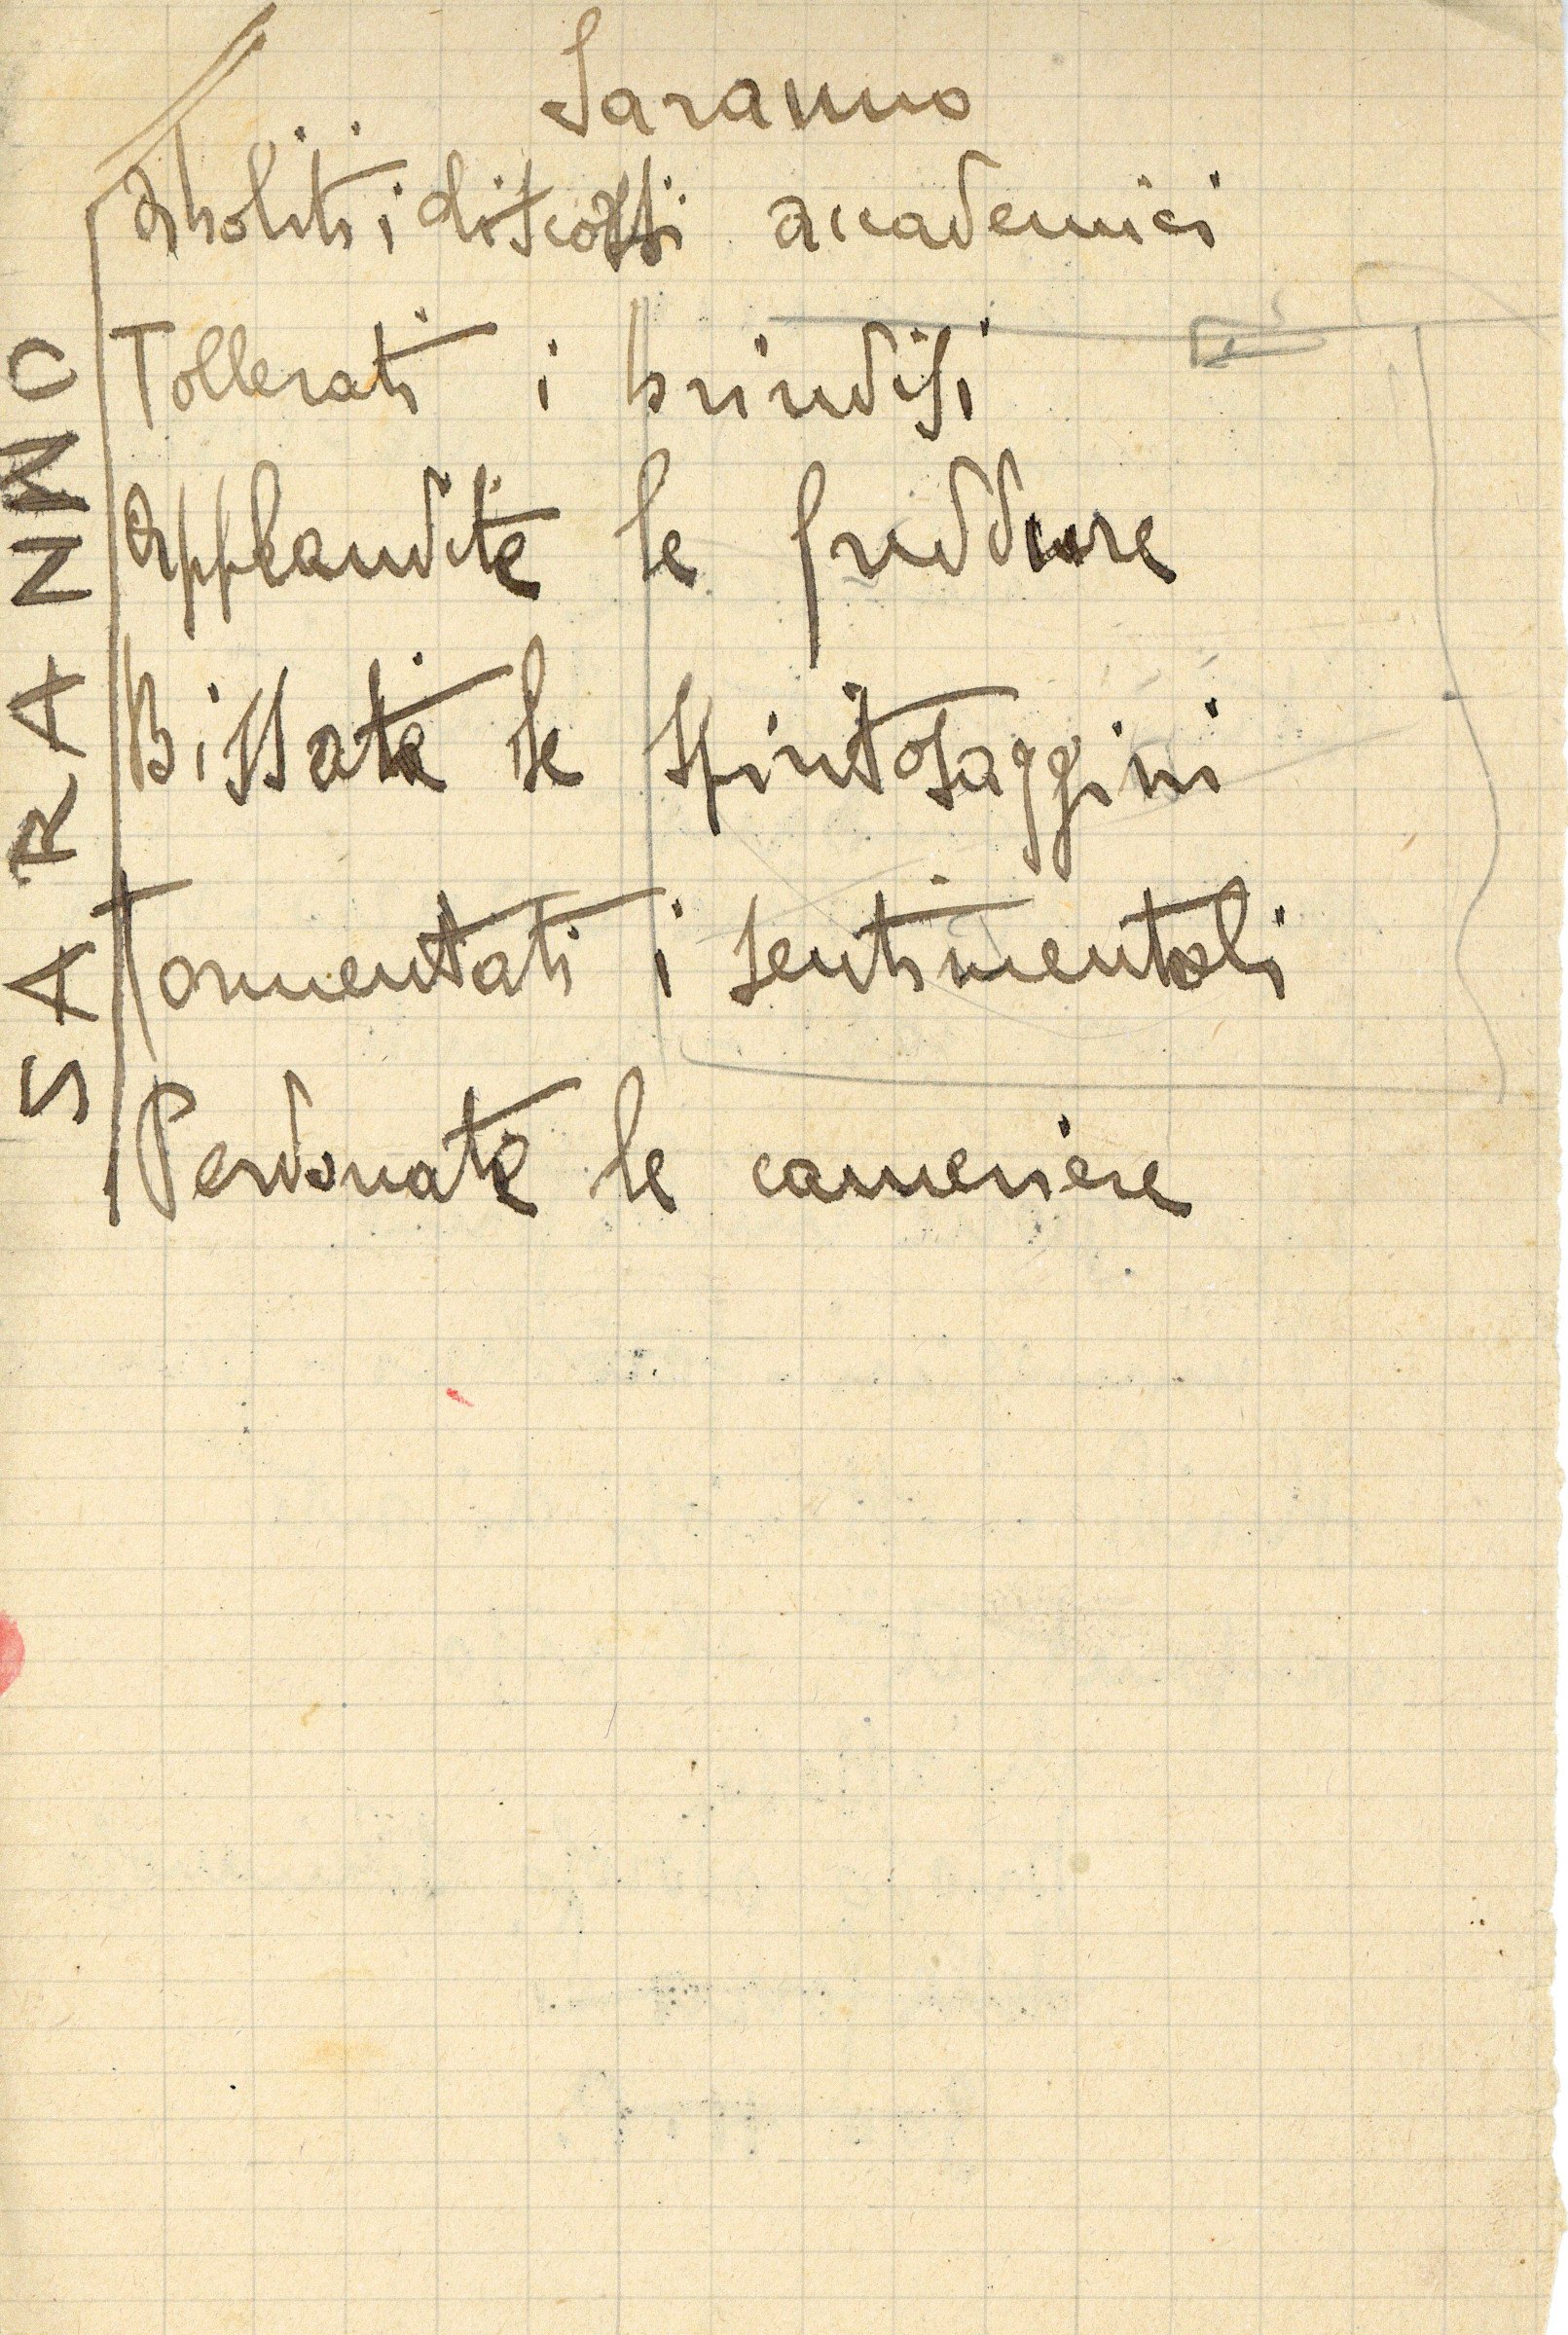 Saranno
Aboliti i discorsi accademici
Tollerati i brindisi
Applaudite le freddure
Bissate le spiritosaggini
Tormentati i sentimentali
Perdonate le cameriere
SARANNO